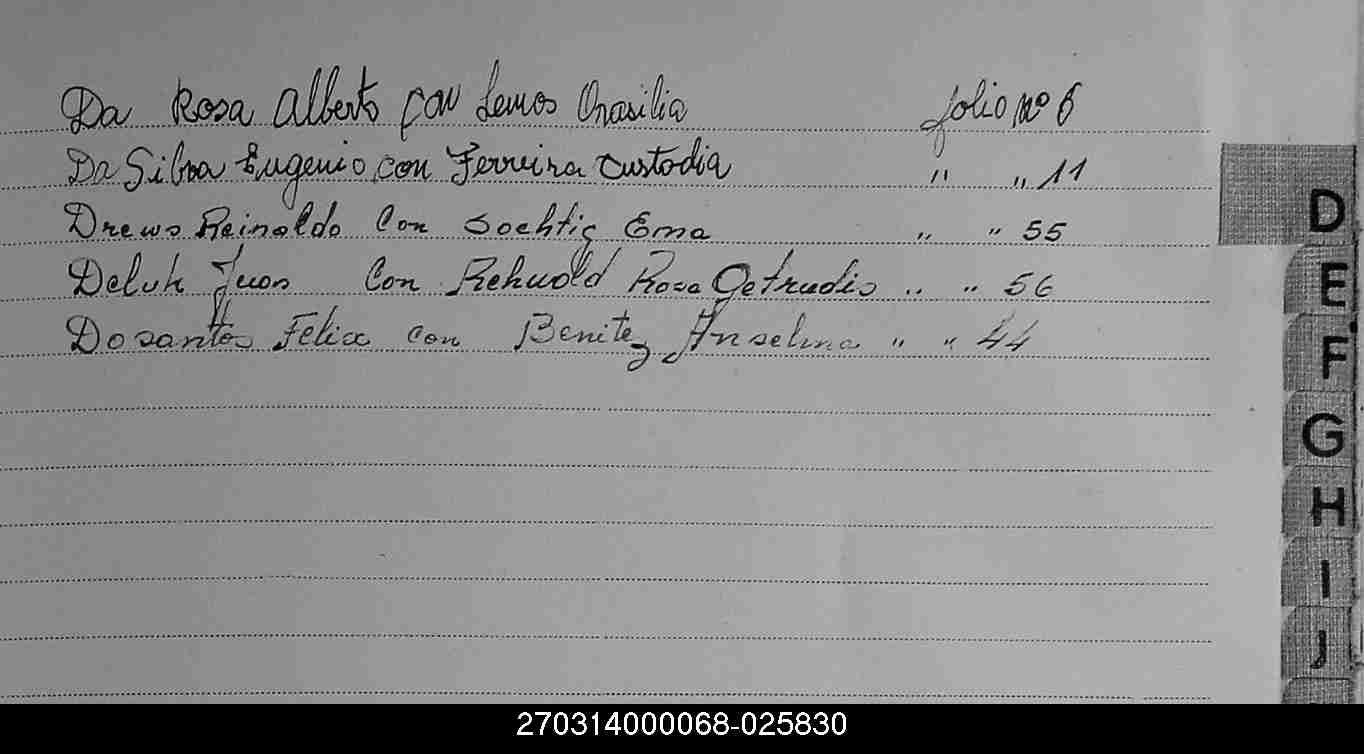 Da Rosa Alberto con Lemos Orasilia folio nº 6
Da Silva Eugenio con Ferreira Custodia " " 11
Drews Reinaldo Con Sochtig Ema " " 55
Deluk Juan Con Rehwold Rosa Getrudis " " 56
Dosantos Felix con Benitez Anselma " " 44
D
E
F
G
H
I
J
270314000068-025830